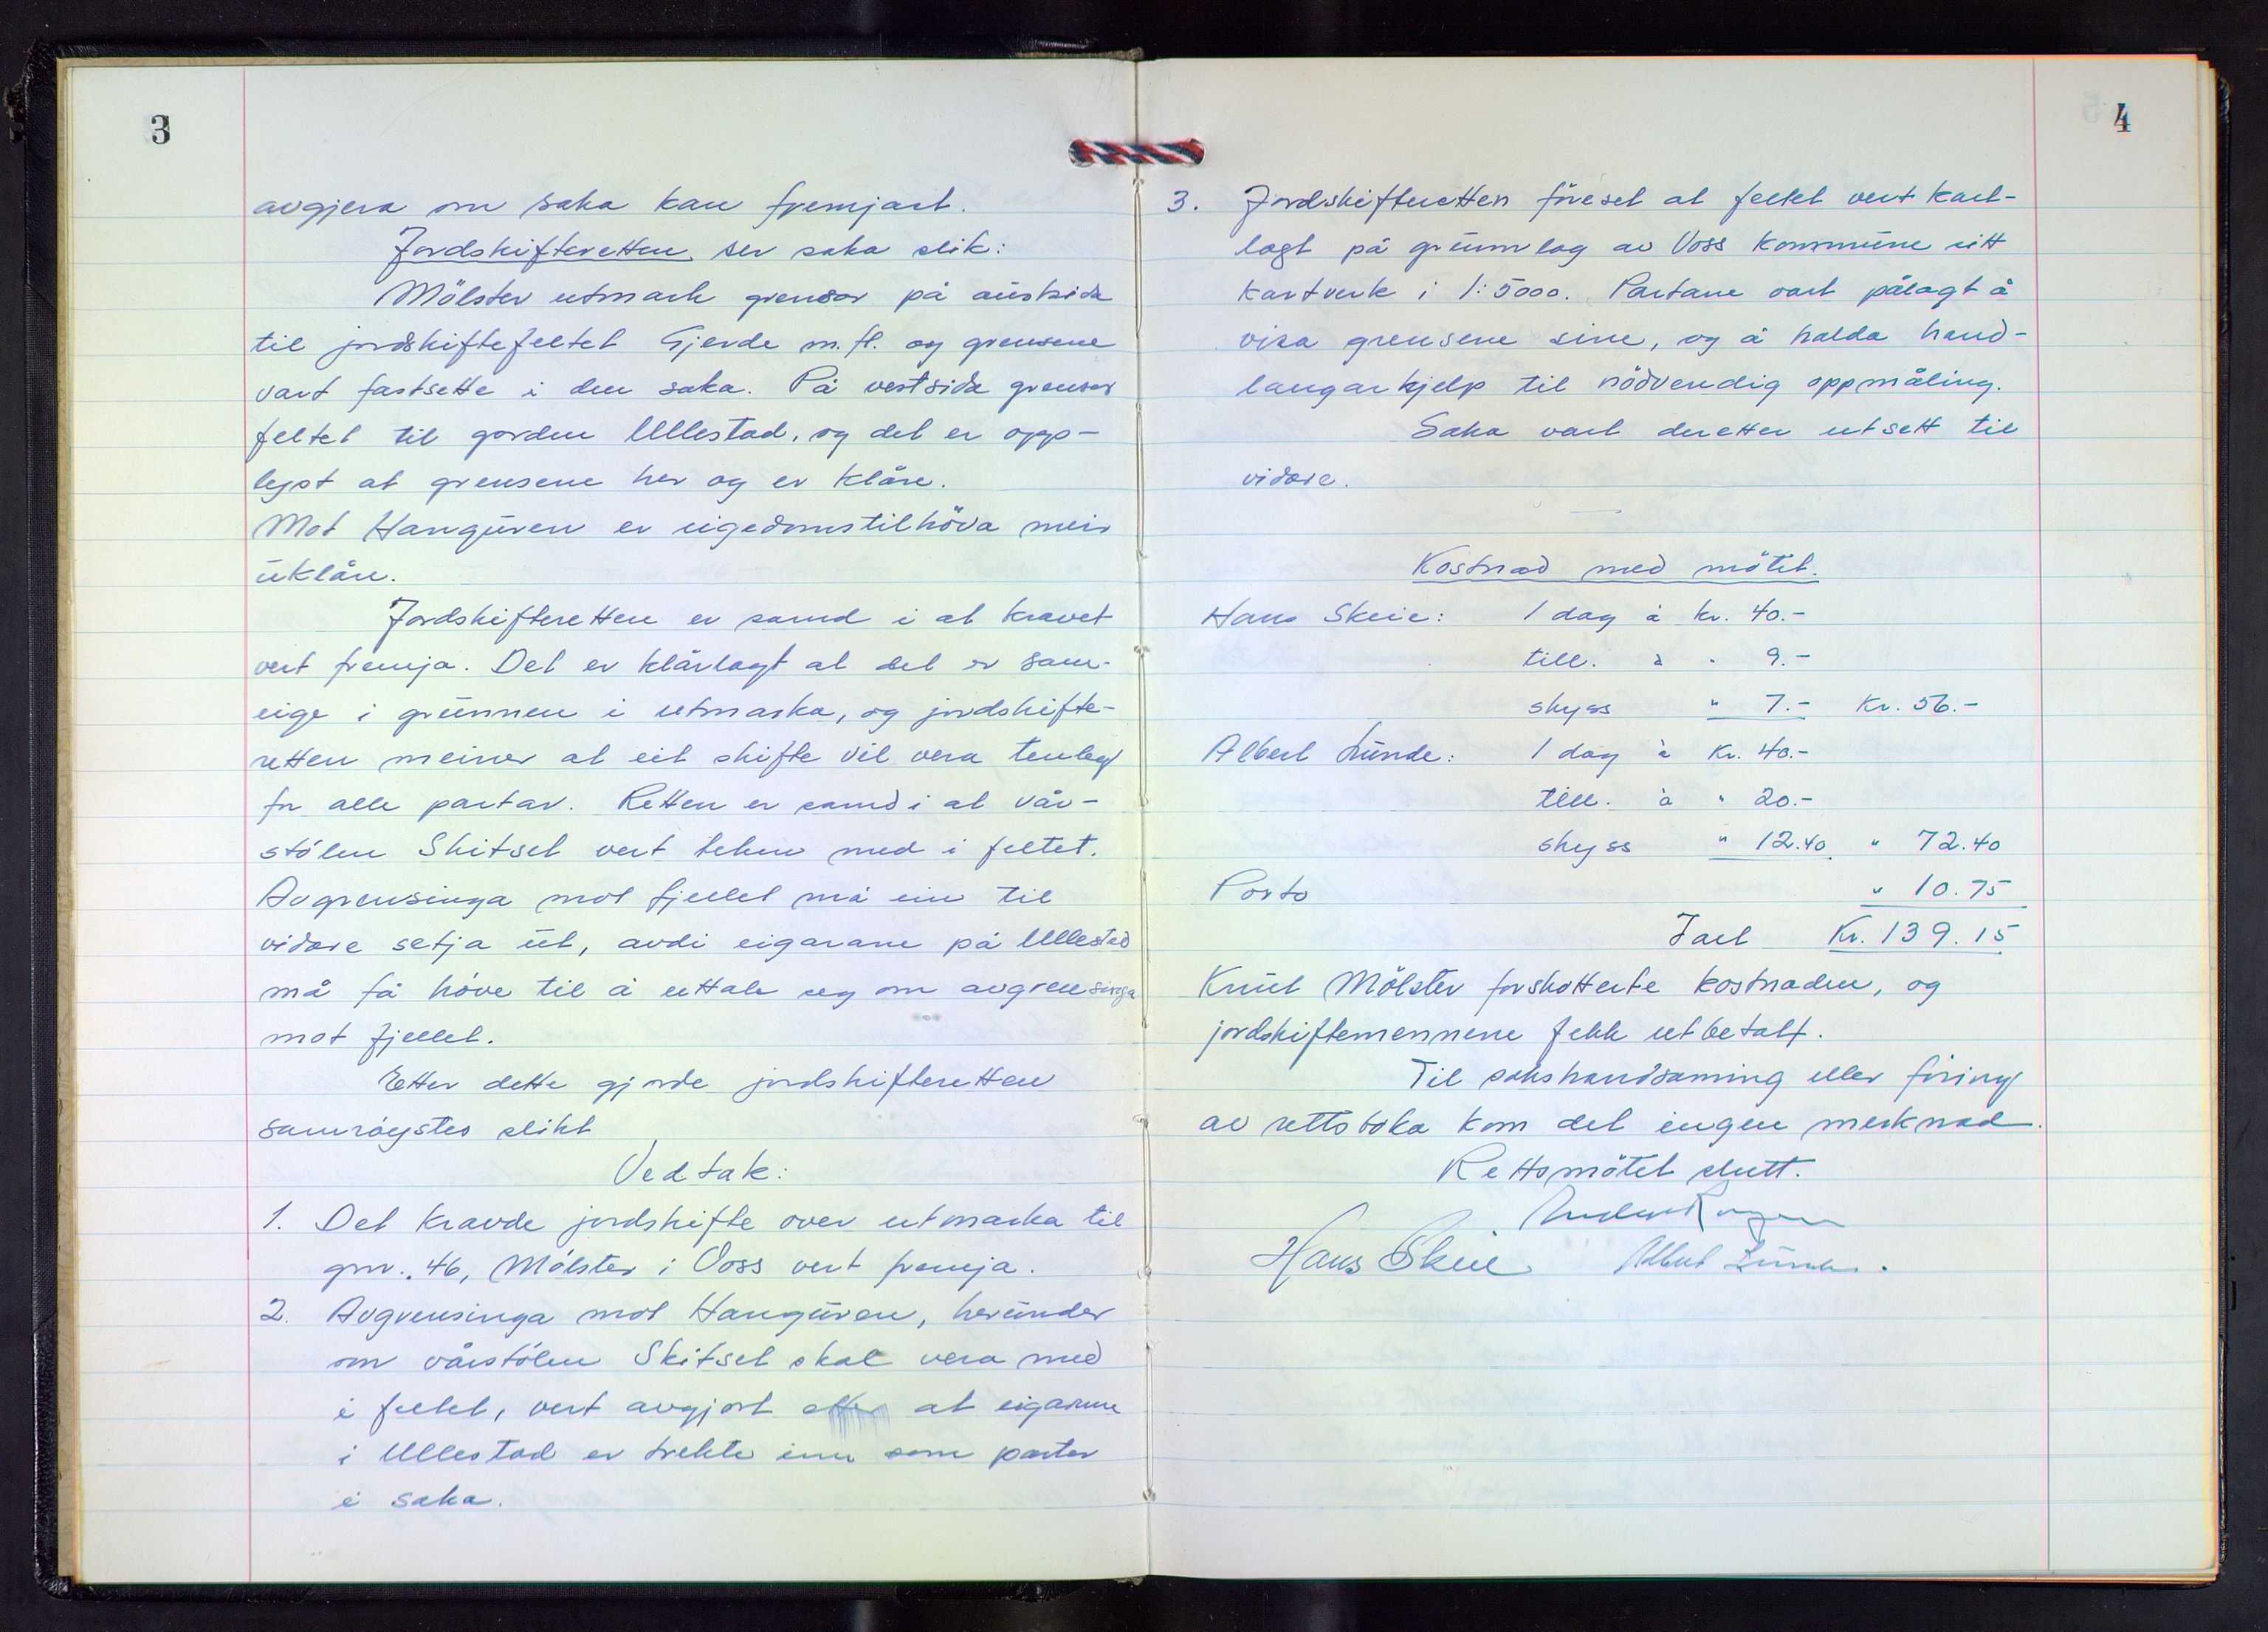 3
avgjera om saka kan fremjast.
Jordskifteretten ser saka slik:
Mölster utmark grensar på austsida
til jordskiftefeltet Gjerde m.fl. og grensene
vart fastsette i den saka. På vestsida grensar
feltet til garden Ullestad, og det er opp-
lyst at grensene her og er klåre.
Mot Hanguren er eigedomstilhöva meir
uklåre.
Jordskifteretten er samd i at kravet
vert fremja. Det er klårlagt at det er sam-
eige i grunnen i utmarka, og jordskifte-
retten meiner at eit skifte vil vera tenleg
for alle partar. Retten er samd i at vår-
stölen Skitset vert teken med i feltet.
Avgrensinga mot fjellet må ein til
vidare setja ut, avdi eigarane på Ullestad
må få höve til å uttale seg om avgrensinga
mot fjellet.
Etter dette gjorde jordskifteretten
samröystes slikt
Vedtak:
1. Det kravde jordskifte over utmarka til
gnr. 46, Mölster i Voss vert fremja.
2. Avgrensinga mot Hanguren, herunder
om vårstölen Skitset skal vera med
i feltet, vert avgjort etter at eigarane
i Ullestad er trekte inn som partar
i saka.
4
3. Jordskifteretten föreset at feltet vert kart-
lagt på grunnlag av Voss kommune sitt
kartverk i 1:5000. Partane vart pålagt å
visa grensene sine, og å halda hand-
langarhjelp til nödvendig oppmåling.
Saka vart deretter utsett til
vidare.
Kostnad med mötet.
Hans Skeie: 1 dag à kr. 40.-
till. à " 9.-
skyss " 7.- Kr. 56.-
Albert Lunde: 1 dag à Kr. 40.-
till. à " 20.-
skyss " 12.40 " 72.40
Porto " 10.75
Ialt Kr. 139.15
Knut Mölster forskotterte kostnaden, og
jordskiftemennene fekk utbetalt.
Til sakshandsaming eller föring
av rettsboka kom det ingen merknad.
Rettsmötet slutt.
Hans Skeie Albert Lunde.